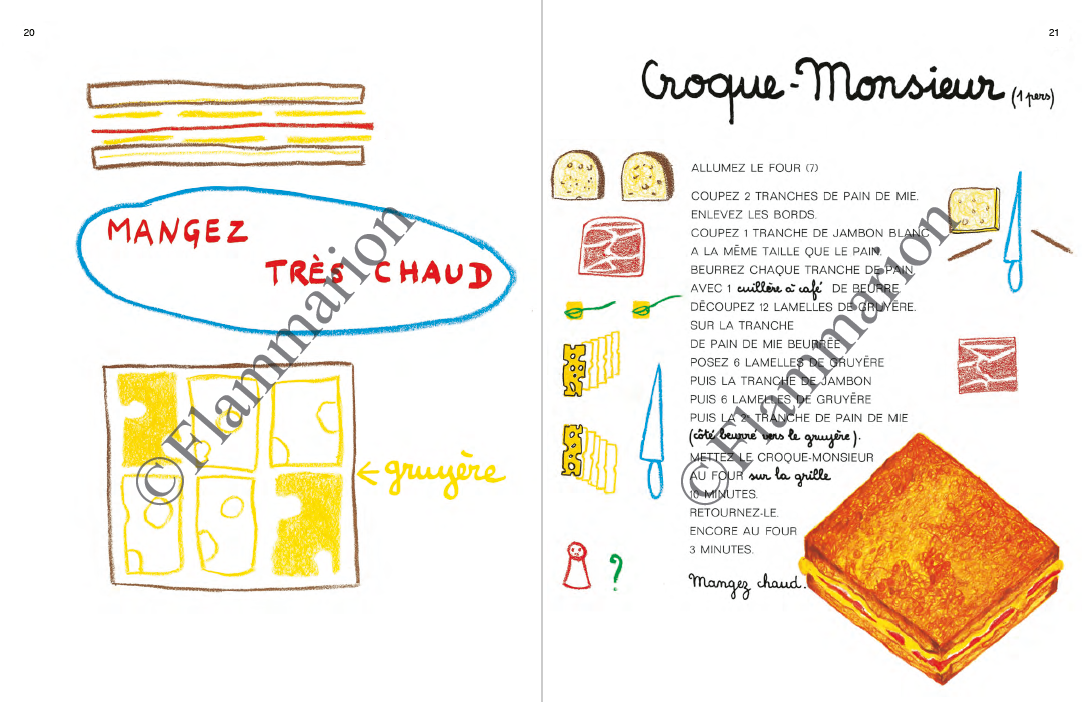 20
MANGEZ
TRÈS CHAUD
← gruyère
©Flammarion
21
Croque-Monsieur (1 pers)
ALLUMEZ LE FOUR (7)
COUPEZ 2 TRANCHES DE PAIN DE MIE.
ENLEVEZ LES BORDS.
COUPEZ 1 TRANCHE DE JAMBON BLANC
A LA MÊME TAILLE QUE LE PAIN.
BEURREZ CHAQUE TRANCHE DE PAIN
AVEC 1 cuillère à café DE BEURRE.
DÉCOUPEZ 12 LAMELLES DE GRUYÈRE.
SUR LA TRANCHE
DE PAIN DE MIE BEURRÉE
POSEZ 6 LAMELLES DE GRUYÈRE
PUIS LA TRANCHE DE JAMBON
PUIS 6 LAMELLES DE GRUYÈRE
PUIS LA 2e TRANCHE DE PAIN DE MIE
(côté beurré vers le gruyère).
METTEZ LE CROQUE-MONSIEUR
AU FOUR sur la grille
10 MINUTES.
RETOURNEZ-LE.
ENCORE AU FOUR
3 MINUTES.
?
Mangez chaud.
©Flammarion